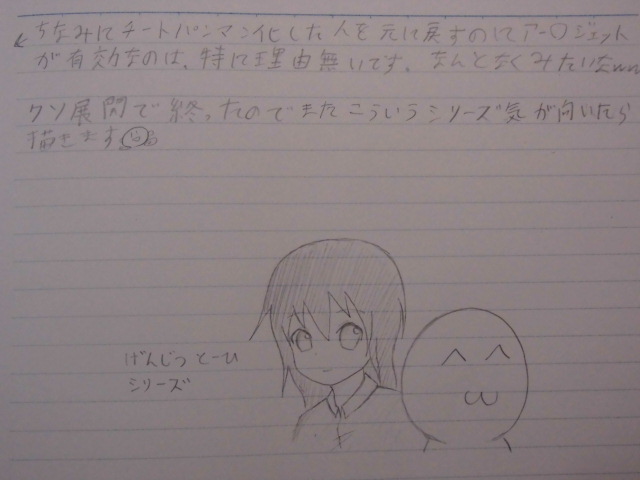 ちなみにチートパンマン化した人を元に戻すのにアー〇ジェット
が有効なのは、特に理由無いです。なんとなくみたいなwww
クソ展開で終ったのでまたこういうシリーズ気が向いたら
描きます
げんじつとーひ
シリーズ